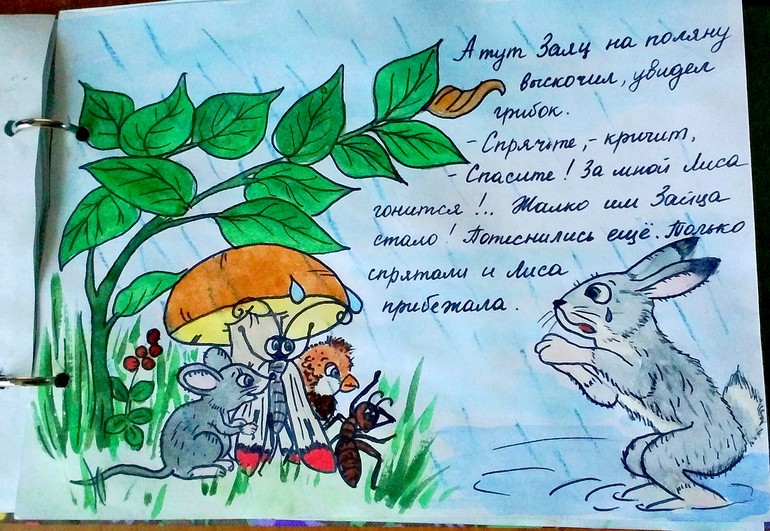 А тут Заяц на поляну
выскочил, увидел
грибок.
- Спрячьте, - кричит,
- Спасите! За мной Лиса
гонится!.. Жалко им Зайца
стало! Потиснились ещё. Только
спрятали и Лиса
прибежала.